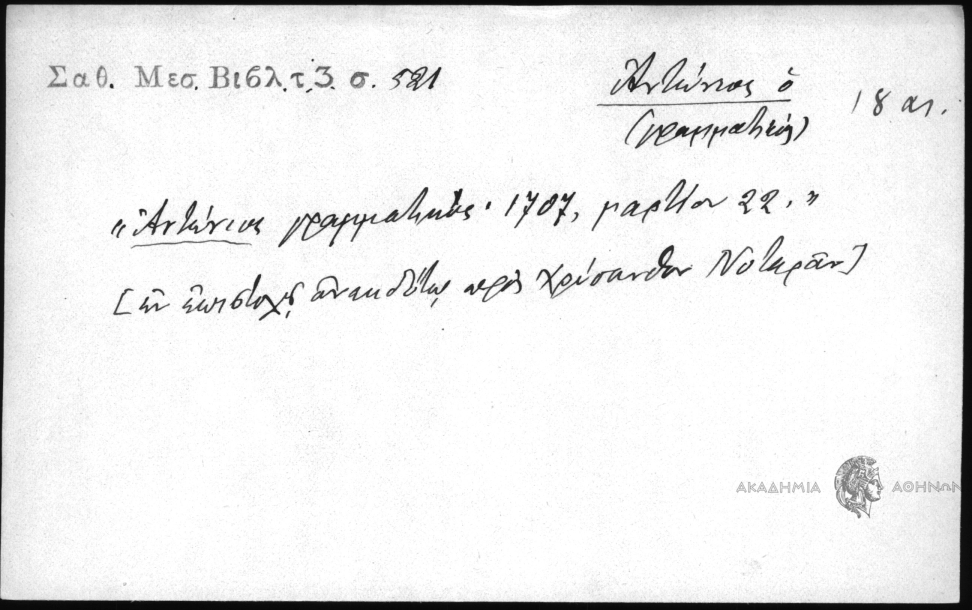 Σαθ. Μεσ. Βιβλ. τ. 3. σ. 521
Ἀντώνιος ὁ
(γραμματικός)
18 αι.
"Ἀντώνιος γραμματικός· 1707, μαρτίου 22."
[ἐν ἐπιστολῇ ἀνεκδότῳ πρὸς Χρύσανθον Νοταρᾶν]
ΑΚΑΔΗΜΙΑ ΑΘΗΝΩΝ